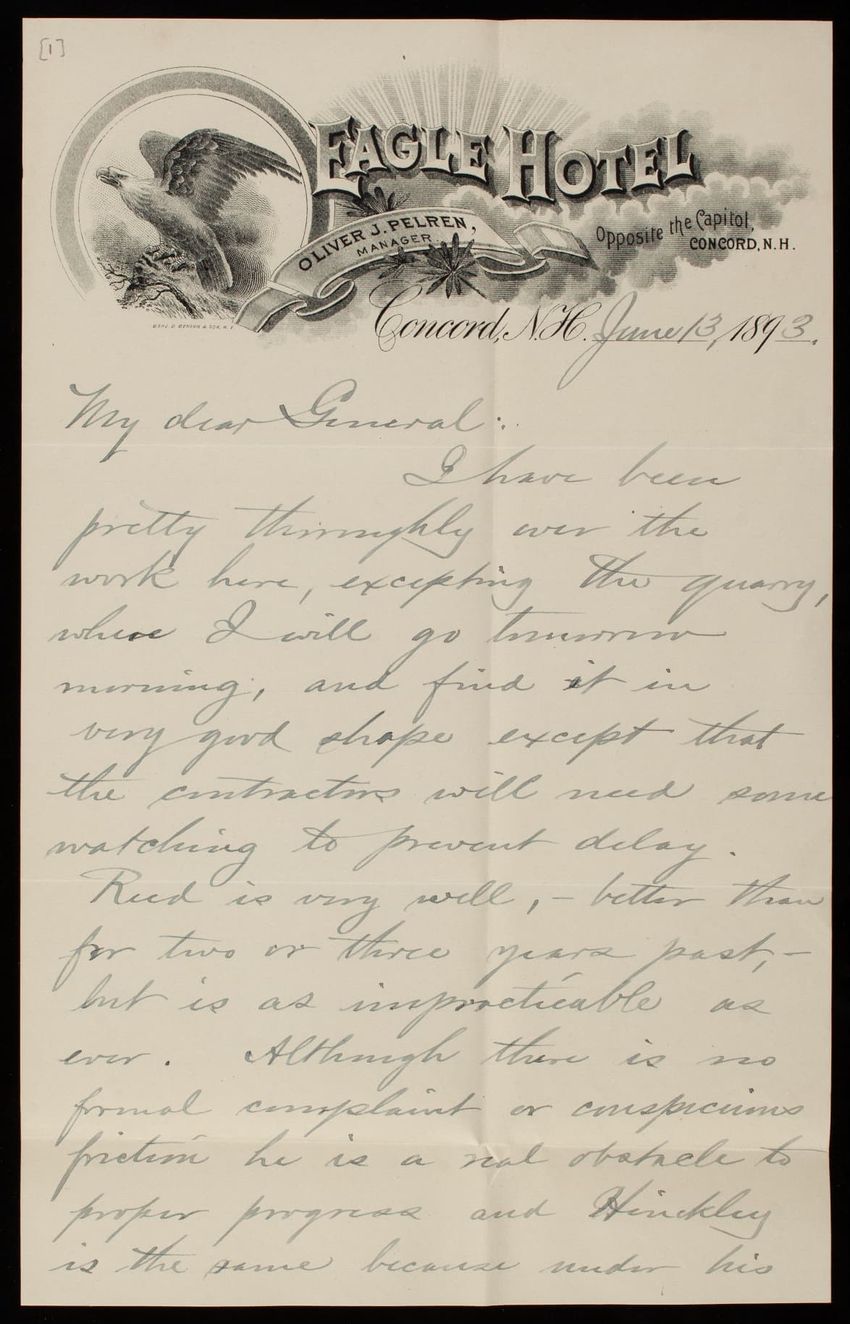 [1]
EAGLE HOTEL
OLIVER J. PELREN,
MANAGER
Opposite the Capitol,
CONCORD, N.H.
Concord, N.H. June 13, 1893.
My dear General:
I have been
pretty thoroughly over the
work here, excepting the quarry,
where I will go tomorrow
morning, and find it in
very good shape except that
the contractors will need some
watching to prevent delay.
Reed is very well, - better than
for two or three years past, -
but is as impracticable as
ever. Although there is no
formal complaint or conspicuous
friction he is a real obstacle to
proper progress and Hinckley
is the same because under his